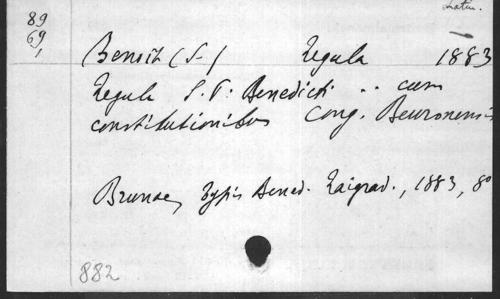 Latin.
89
69
1
Benoit (S-) Regula 1883
Regula S. P. Benedicti .. cum
constitutionibus Cong. Beuronensis
Brunae, typis Bened. Raigrad., 1883, 8º
882